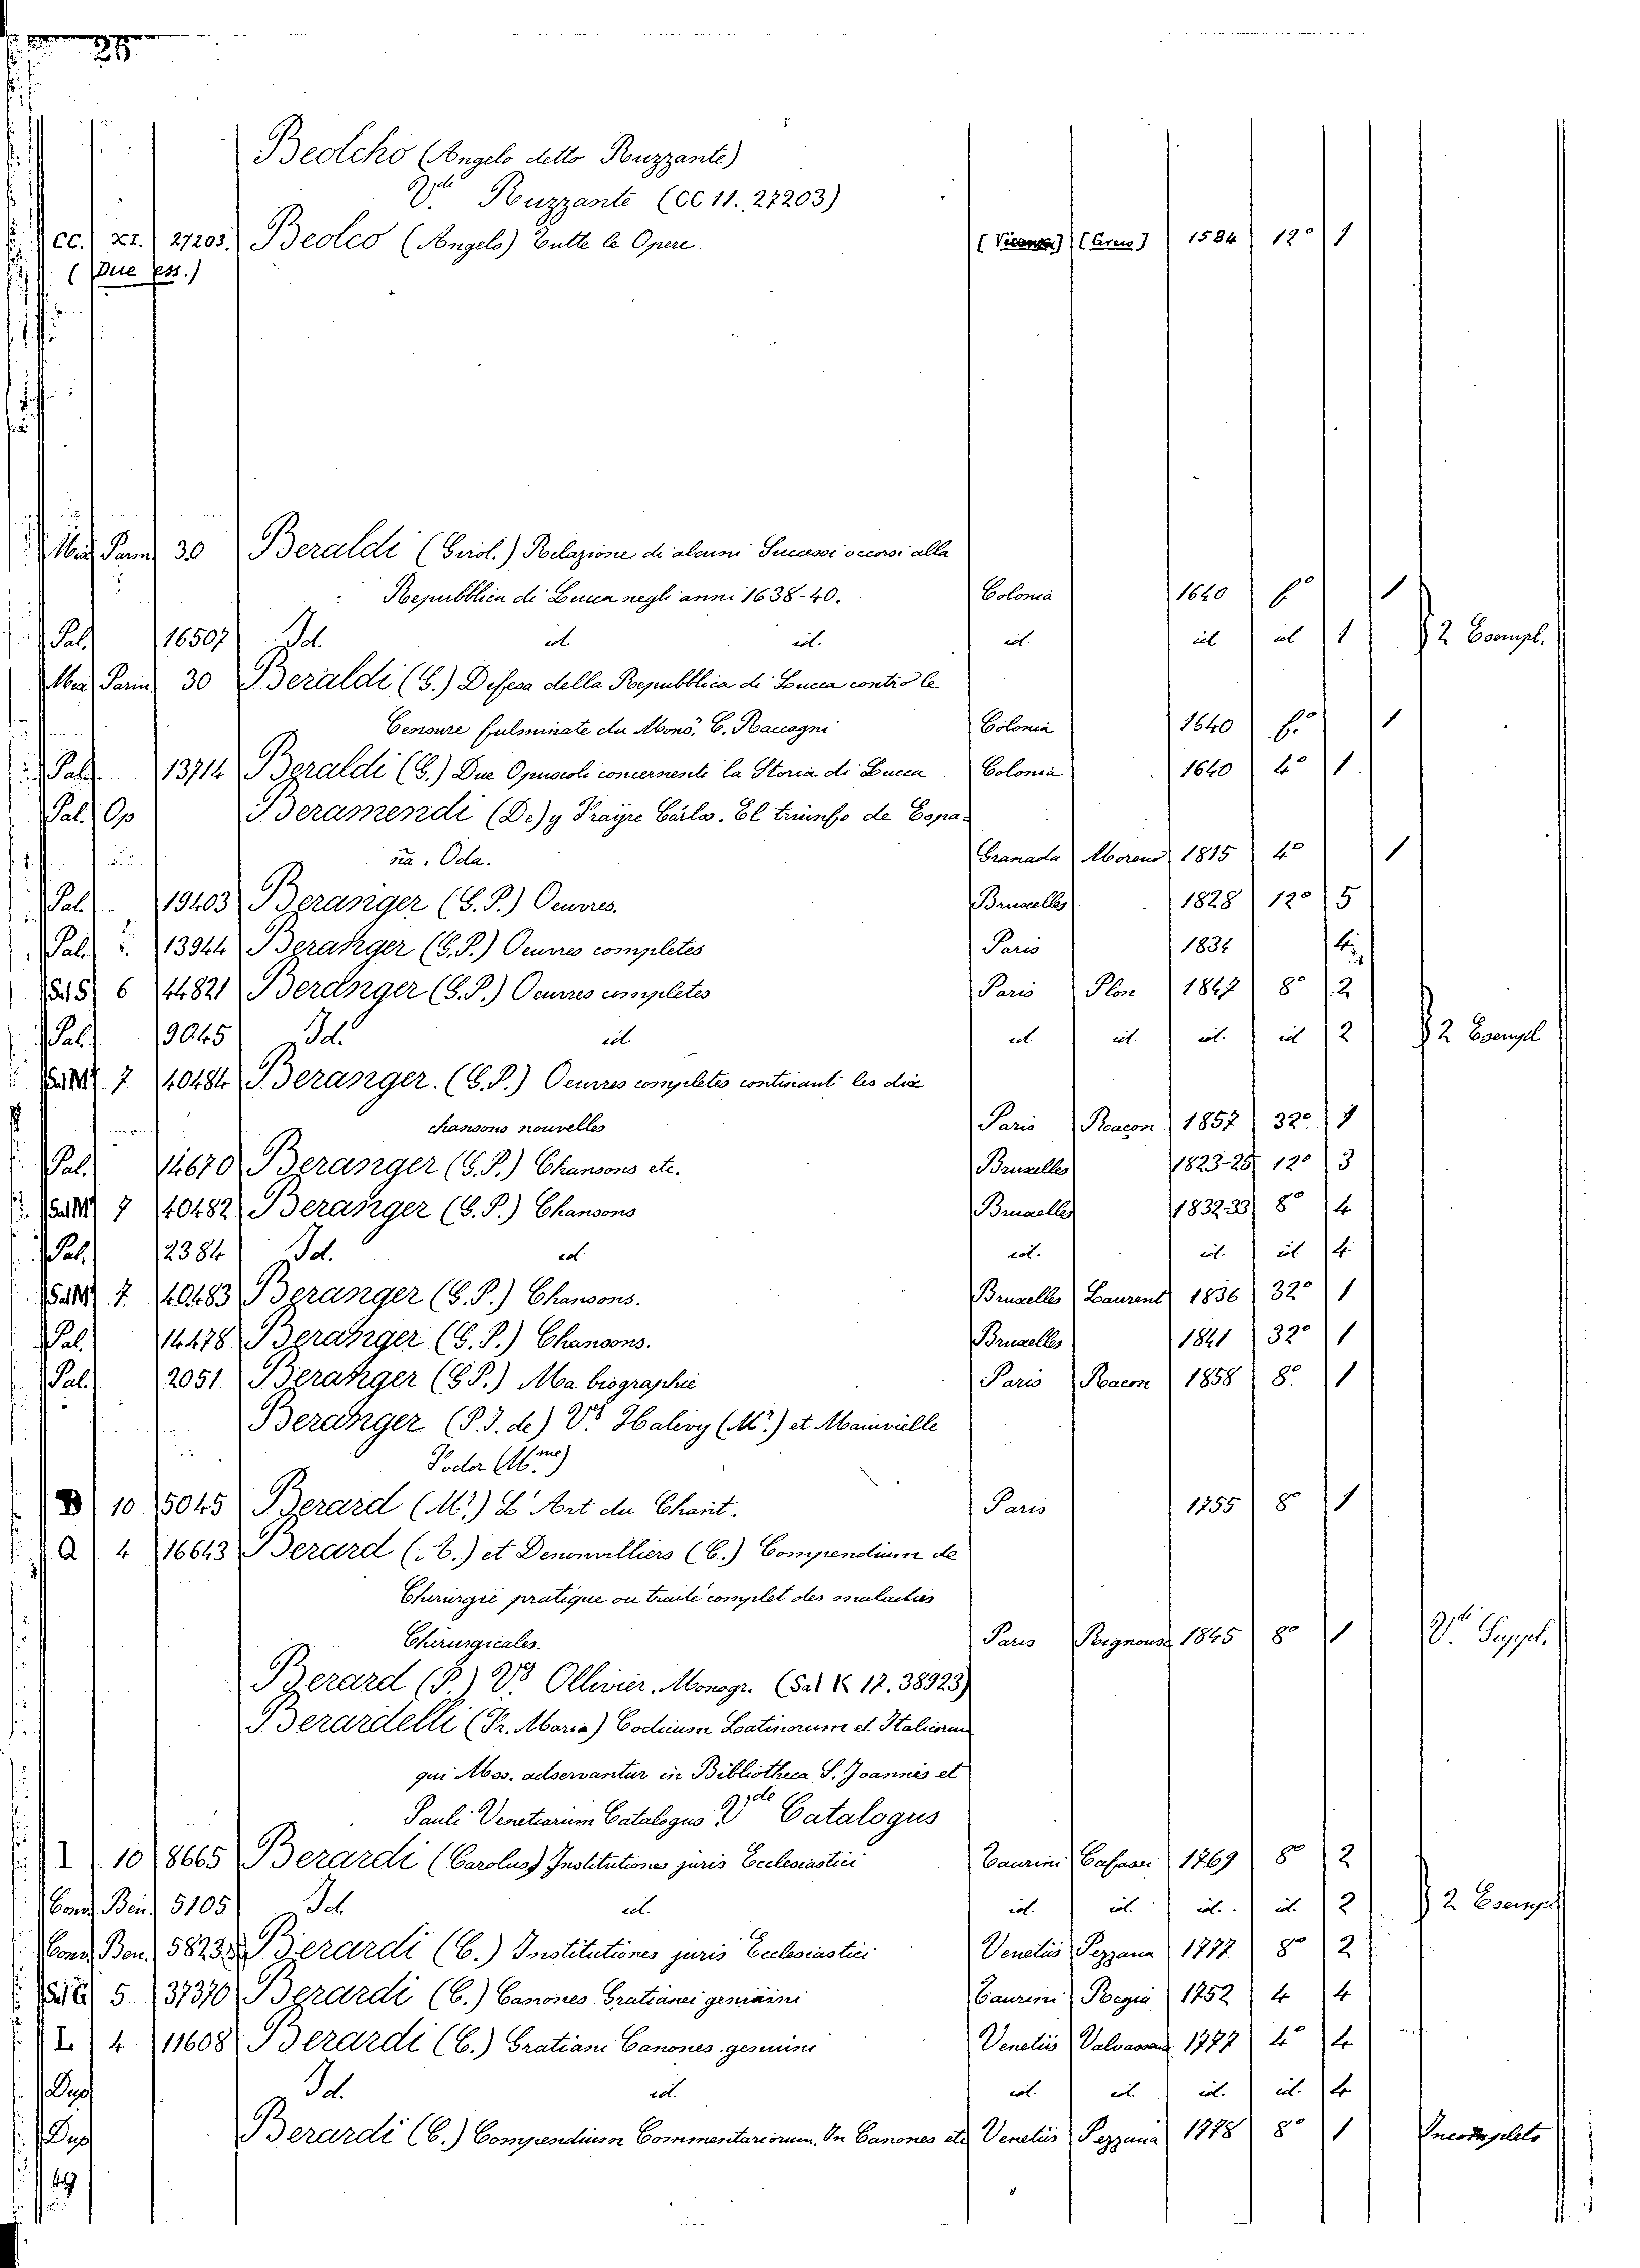 25
Beolcho (Angelo detto Ruzzante)
V.di Ruzzante (CC 11. 27203)
CC. XI. 27203. Beolco (Angelo) Tutte le Opere [Vicenza] [Greco] 1584 12° 1
(Due es.)
Mis. Parm. 30 Beraldi (Girol.) Relazione di alcuni Successi occorsi alla
Repubblica di Lucca negli anni 1638-40. Colonia 1640 f° 1
Pal. 16507 Id. id. id. id. id id 1 2 Esempl.
Mis. Parm. 30 Beraldi (G.) Difesa della Repubblica di Lucca contro le
Censure fulminate da Mons. C. Raccagni Colonia 1640 f.° 1
Pal. 13714 Beraldi (G.) Due Opuscoli concernenti la Storia di Lucca Colonia 1640 4° 1.
Pal. Op Beramendi (De) y Frayre Carlos. El triunfo de Espa-
ña. Oda. Granada Moreno 1815 4° 1
Pal. 19403 Beranger (G. P.) Oeuvres. Bruxelles 1828 12° 5
Pal. 13944 Beranger (G. P.) Oeuvres completes Paris 1834 4
6 44821 Beranger (G. P.) Oeuvres completes Paris Plon 1847 8° 2
Pal. 9045 Id. id. id. id. id. id. 2 2 Esempl
Sal M 7. 40484 Beranger. (G. P.) Oeuvres completes contenant les dix
chansons nouvelles Paris Racon 1857 32° 1
Pal. 14670 Beranger (G. P.) Chansons etc. Bruxelles 1823-25 12° 3
Sal M 7 40482 Beranger (G. P.) Chansons Bruxelles 1832-33 8° 4
Pal. 2384 Id. id. id. id. id 4
Sal M 7. 40483 Beranger (G. P.) Chansons. Bruxelles Laurent 1836 32° 1
Pal. 14478 Beranger (G. P.) Chansons. Bruxelles 1841 32° 1
Pal. 2051 Beranger (G P.) Ma biographie Paris Racon 1858 8° 1
Beranger (P. J. de) V.s Halevy (Mr.) et Mainvielle
Fodor (Mme)
D 10 5045 Berard (Mr.) L'Art du Chant. Paris 1755 8° 1
Q 4 16643 Berard (A.) et Denonvilliers (C.) Compendium de
Chirurgie pratique ou traité complet des maladies
Chirurgicales. Paris Rignoux 1845 8° 1 V.di Suppl.
Berard (P.) V.s Ollivier. Monogr. (Sal K 12. 38923)
Berardelli (Fr. Maria) Codicum Latinorum et Italicorum
qui Mss. adservantur in Bibliotheca S. Joannis et
Pauli Venetiarum Catalogus V.de Catalogus
I 10 8665 Berardi (Carolus) Institutiones juris Ecclesiastici Taurini 1769 8° 2
Conv. Ben. 5105 Id id. id. id. id. id. 2 2 Esempl
Conv. Ben. 5823 Berardi (C.) Institutiones juris Ecclesiastici Venetiis Pezzana 1777 8° 2
5. 37370 Berardi (C.) Canones Gratiani genuini Taurini Regia 1752 4 4
I. 4. 11608 Berardi (C.) Gratiani Canones genuini Venetiis 1777 4° 4
Dup Id. id. id. id id. id. 4
Dup Berardi (C.) Compendium Commentariorum. In Canones etc Venetiis Pezzana 1778 8° 1 Incompleto
49